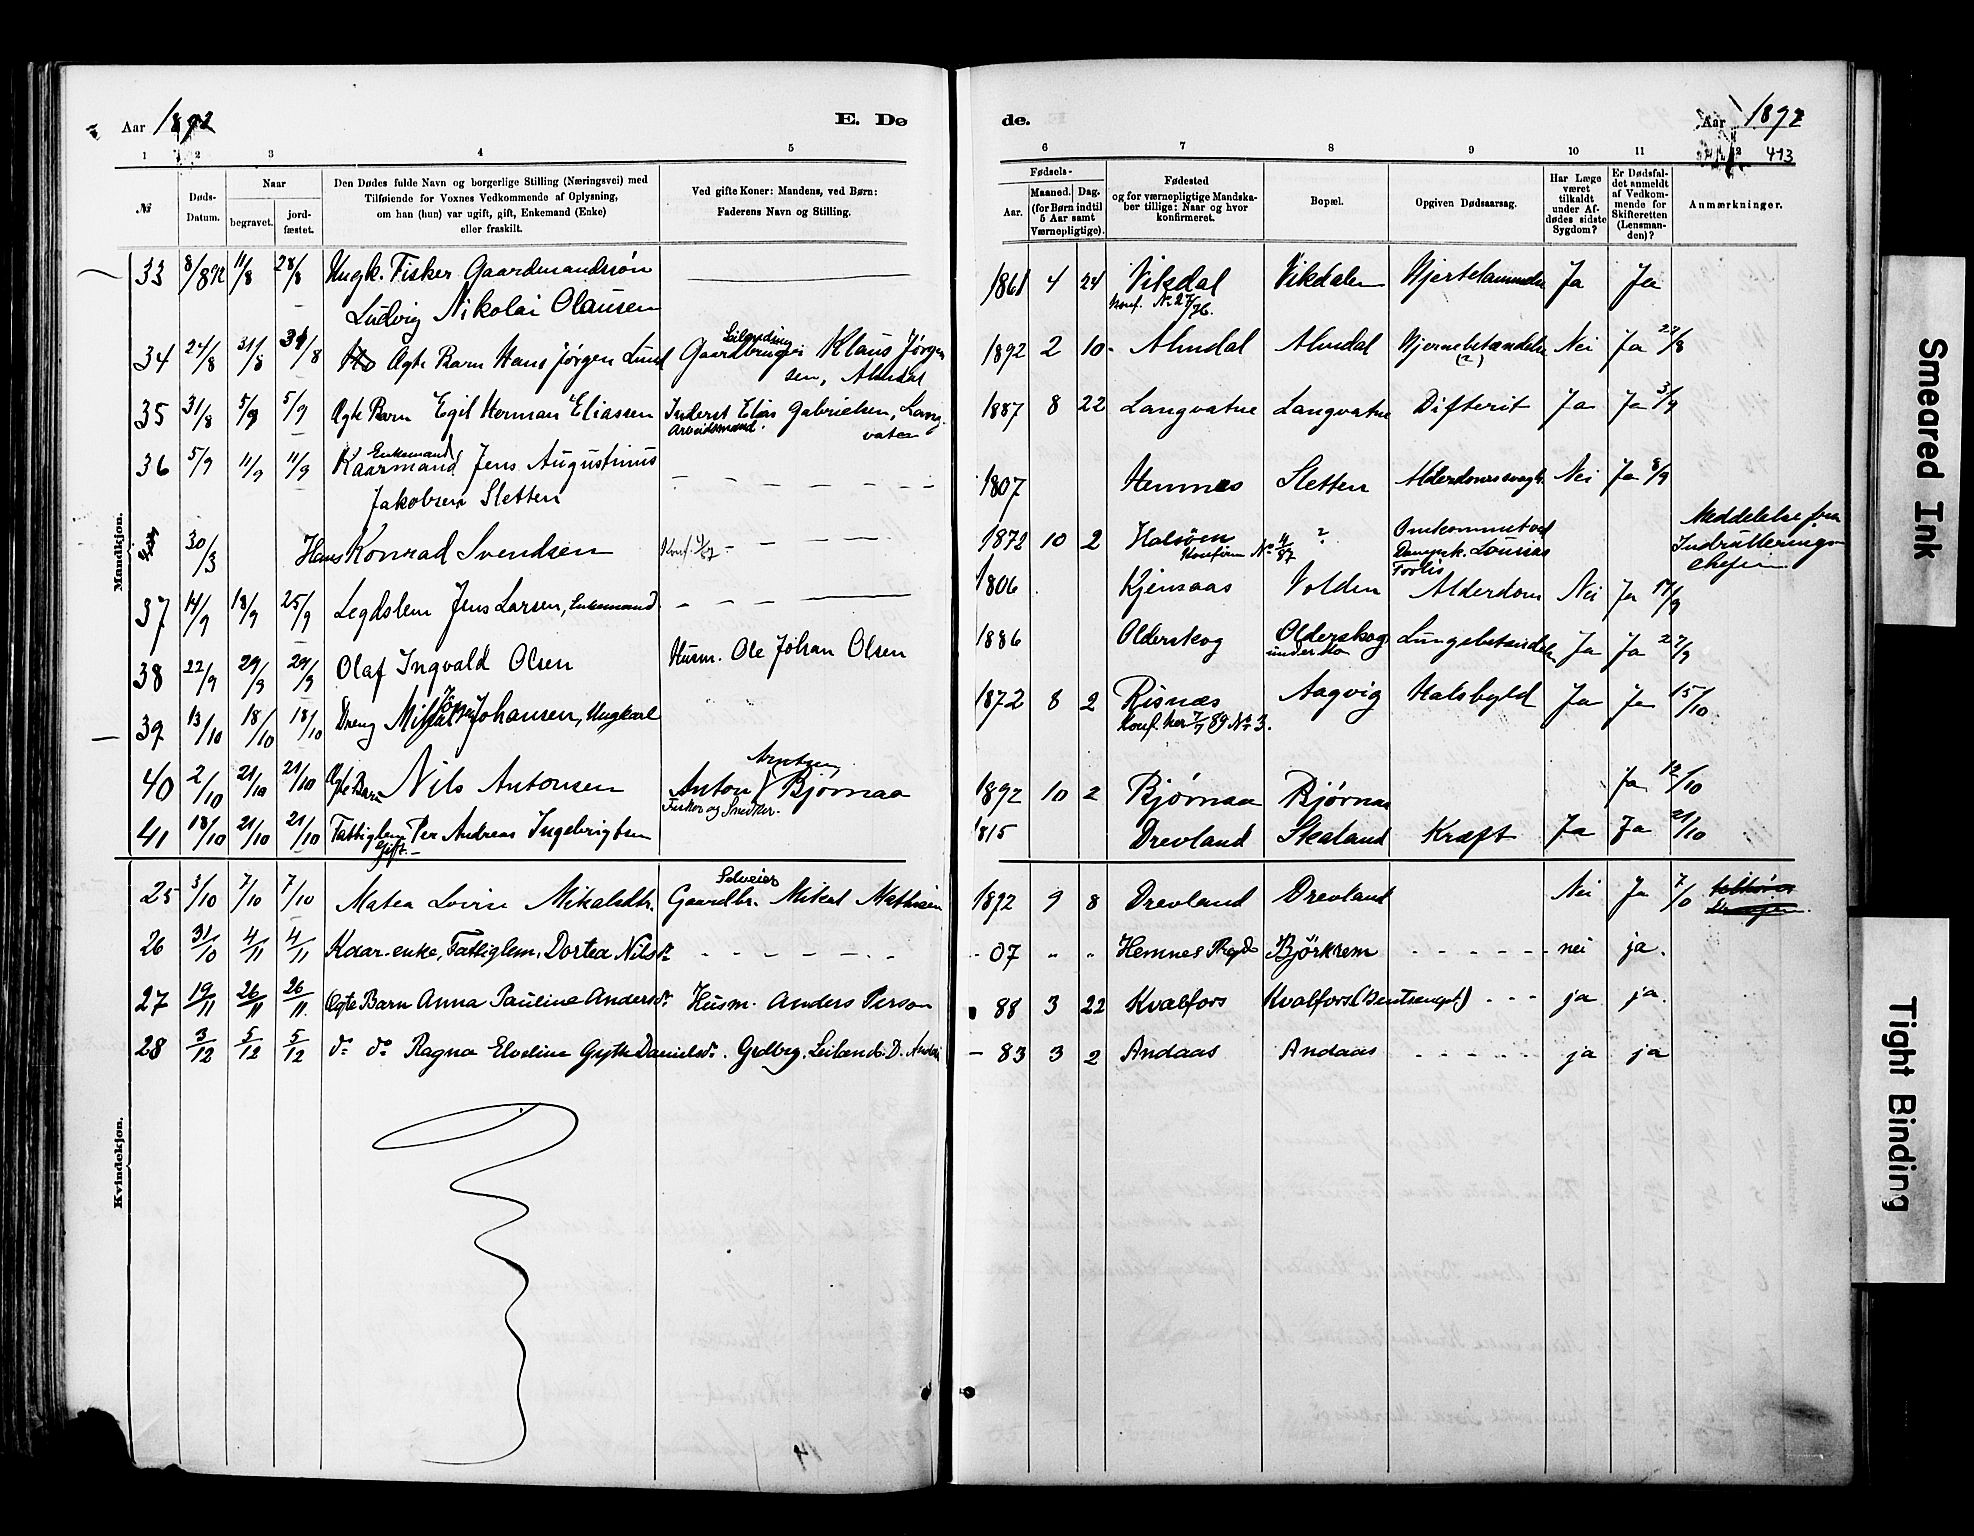 Aar 1892
E. Dø
de.
Aar 1892
1 2 3 4 5
6 7 8 9 10 11 12 413
№
Døds-Datum.
Naar
begravet.
jord-fæstet.
Den Dødes fulde Navn og borgerlige Stilling (Næringsvei) med
Tilføiende for Voxnes Vedkommende af Oplysning,
om han (hun) var ugift, gift, Enkemand (Enke)
eller fraskilt.
Ved gifte Koner: Mandens, ved Børn:
Faderens Navn og Stilling.
Fødsels-
Aar.
Maaned. Dag.
(for Børn indtil
5 Aar samt
Værnepligtige).
Fødested
og for værnepligtige Mandska-
ber tillige: Naar og hvor
konfirmeret.
Bopæl.
Opgiven Dødsaarsag.
Har Læge
været
tilkaldt
under Af-
dødes sidste
Sygdom?
Er Dødsfal-
det anmeldt
af Vedkom-
mende for
Skifteretten
(Lensman-
den)?
Anmærkninger.
Mandkjøn.
33 8/892 11/8 28/8 Ungk. Fisker Gaardmandssøn 1861 4 24 Vikdal Vikdalen Hjertelammelse Ja Ja
Ludvig Nikolai Olausen Konf. No 27/76.
34 24/8 31/8 31/8 Ægte Barn Hans Jørgen Lund Gaardbruger Klaus Jørgen 1892 2 10 Almdal Almdal Hjernebetændelse Nei Ja 27/8
sen, Almdal (?)
35 31/8 5/9 5/9 Ægte Barn Egil Herman Eliassen Inderst Elias Gabrielsen, Lang- 1887 8 22 Langvatne Langvatne Difterit Ja Ja 3/9
Arbeidsmand. vatne
36 5/9 11/9 11/9 Kaarmand Enkemand Jens Augustinus 1807 Hemnes Sletten Alderdomssvagh. Nei Ja 8/9
Jakobsen Sletten
30/3 Hans Konrad Svendsen Konf. 4/87 1872 10 2 Halsøen ? Omkommet ved Meddelelse fra
Konf. No 4/87 Dampsk. Lousias Indrullerings-
Forlis chefen
37 14/9 18/9 25/9 Legdslem Jens Larsen, Enkemand 1806 Kjensaas Volden Alderdom Nei Ja 17/9
38 22/9 29/9 29/9 Olaf Ingvald Olsen Husm. Ole Johan Olsen 1886 Olderskog Olderskog Lungebetændelse Ja Ja 27/9
39 13/10 18/10 18/10 Dreng Mikal Johansen, Ungkarl 1872 8 2 Risnæs Aagvig Halsbyld Ja Ja 15/10
Konf. her 7/7 89 No 3.
40 2/10 21/10 21/10 Ægte Barn Nils Antonsen Anton Arntsen Bjørnaa 1892 10 2 Bjørnaa Bjørnaa Ja 12/10
Fisker og Snedker.
41 18/10 21/10 21/10 Fattiglem Per Andreas Ingebrigtsen 1815 Drevland Skaland Kræft Ja Ja 21/10
Gift
Kvindekjøn.
25 3/10 7/10 7/10 Matea Lovise Mikalsdtr. Gaardbr. Selveier Mikal Mathisen 1892 9 8 Drevland Drevland Nei Ja 7/0
26 31/10 4/11 4/11 Kaar-enke, Fattiglem, Dortea Nilsdr. - 07 „ „ Hemnes Bjørkrem nei ja.
27 19/11 26/11 26/11 Ægte Barn Anna Pauline Andersdr. Husm. Anders Person 88 3 22 Kvalfors Kvalfors ja ja.
28 3/12 5/12 5/12 do do Ragna Elveline Gythe Danielsdr. Grdbrg. Leilænd. D. - 83 3 2 Andaas Andaas ja ja
Smeared Ink
Tight Binding